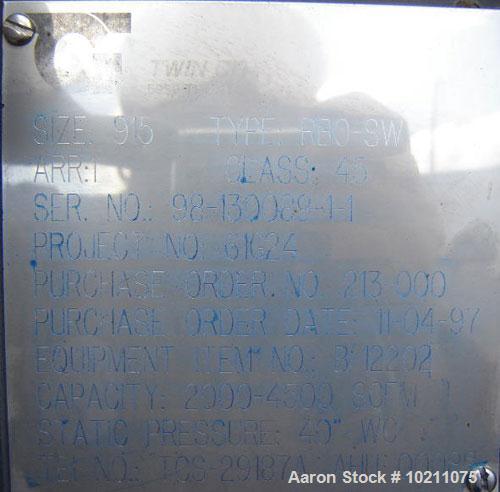 TWIN CITY
SIZE: 915 TYPE: RBO-SW
ARR: 1 CLASS: 45
SER. NO.: 98-130089-1-1
PROJECT NO: 61G24
PURCHASE ORDER NO. 213 000
PURCHASE ORDER DATE: 11-04-97
EQUIPMENT ITEM NO.: B 12202
CAPACITY: 2000-4500 SCFM
STATIC PRESSURE: 40" WC
NO.: TCS-29187A
Aaron Stock # 10211075